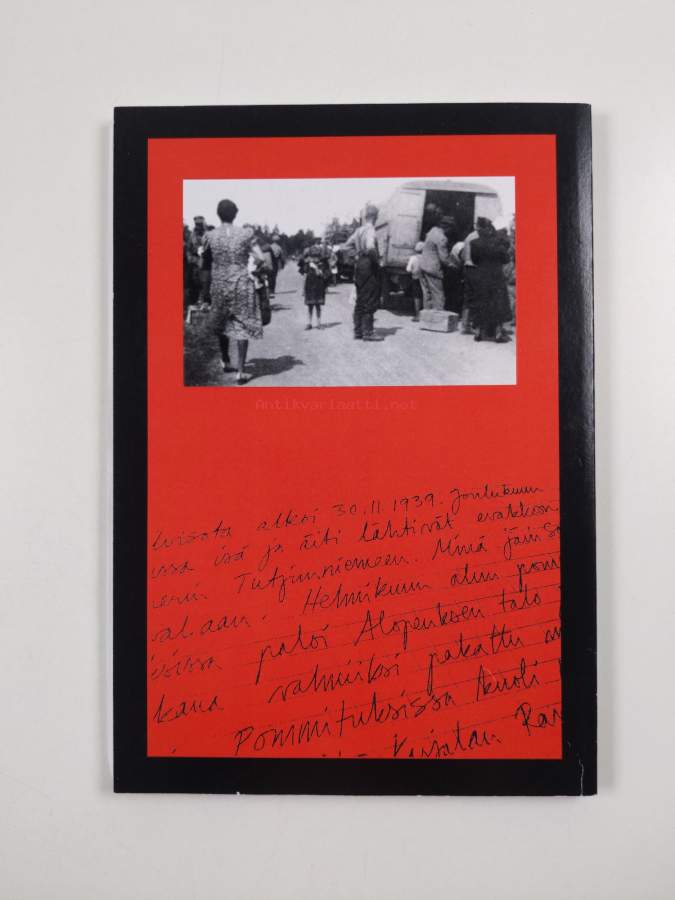 Antikvariaatti.net
lvisota alkoi 30.11.1939. Joulukuun
ussa isä ja äiti lähtivät evakkoon
erin Tutjunniemeen. Minä jäin So
alaan. Helmikuun alun pom
issa paloi Alopeuksen talo
kana valmiiksi pakattu
Pommituksissa kuoli
Ka